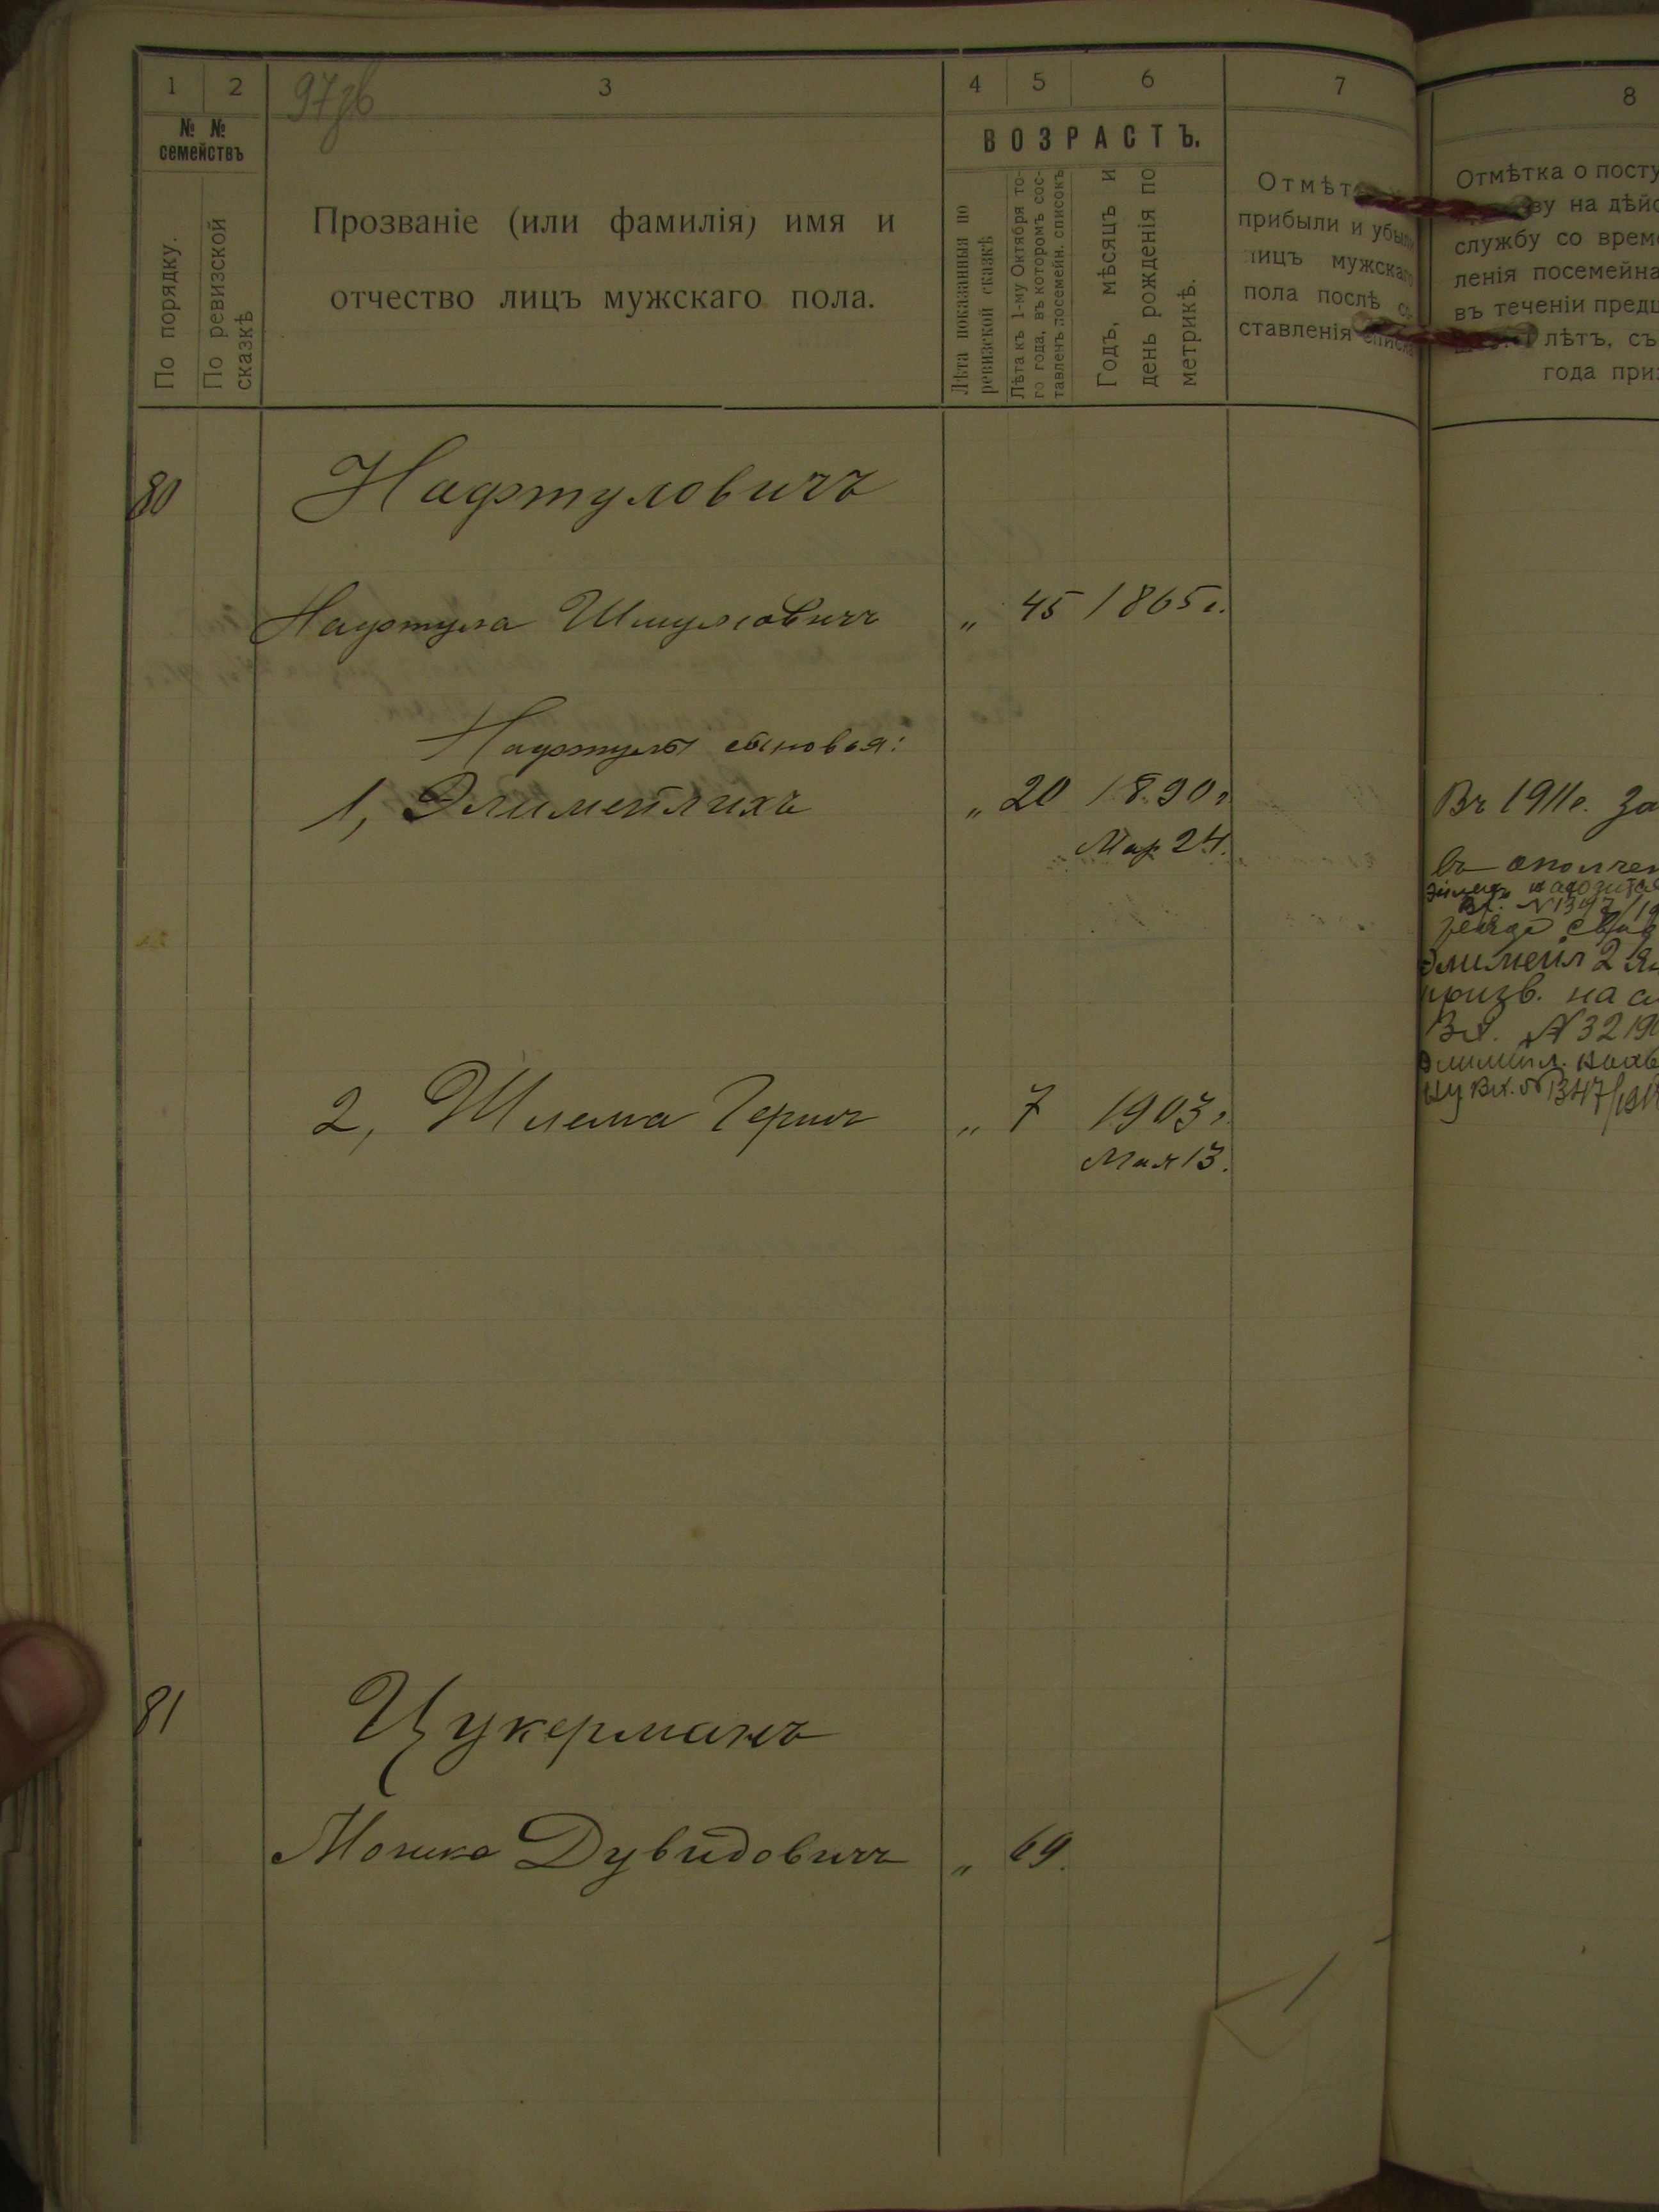 1 2 3 4 5 6 7 8
97зв
№ № семействъ
По порядку.
По ревизской сказкѣ
Прозваніе (или фамилія) имя и
отчество лицъ мужскаго пола.
ВОЗРАСТЪ.
Лѣта показанныя по
ревизской сказкѣ
Лѣта къ 1-му Октября то-
го года, въ которомъ сос-
тавленъ посемейн. списокъ
Годъ, мѣсяцъ и
день рожденія по
метрикѣ.
Отмѣт
прибыли и убыли
лицъ мужскаго
пола послѣ со
ставленія списка
Отмѣтка о посту
ву на дѣйс
службу со врем
ленія посемейна
въ теченіи предш
лѣтъ, съ
года при
80
Нафтуловичъ
Нафтула Шмулювичъ " 45 1865 г.
Нафтулы сыновья:
1, Элимейлихъ " 20 1890 г
Мар 24.
Въ 1911 г. За
въ ополчен
Вх. №1347/19
Элимейл 2 Ян
призв. на сл
Вх. №32190
Вх. №1347/191
2, Шлема Гершъ " 7 1903 г.
Мая 13.
81
Цукерманъ
Мошко Дувидовичъ " 69.